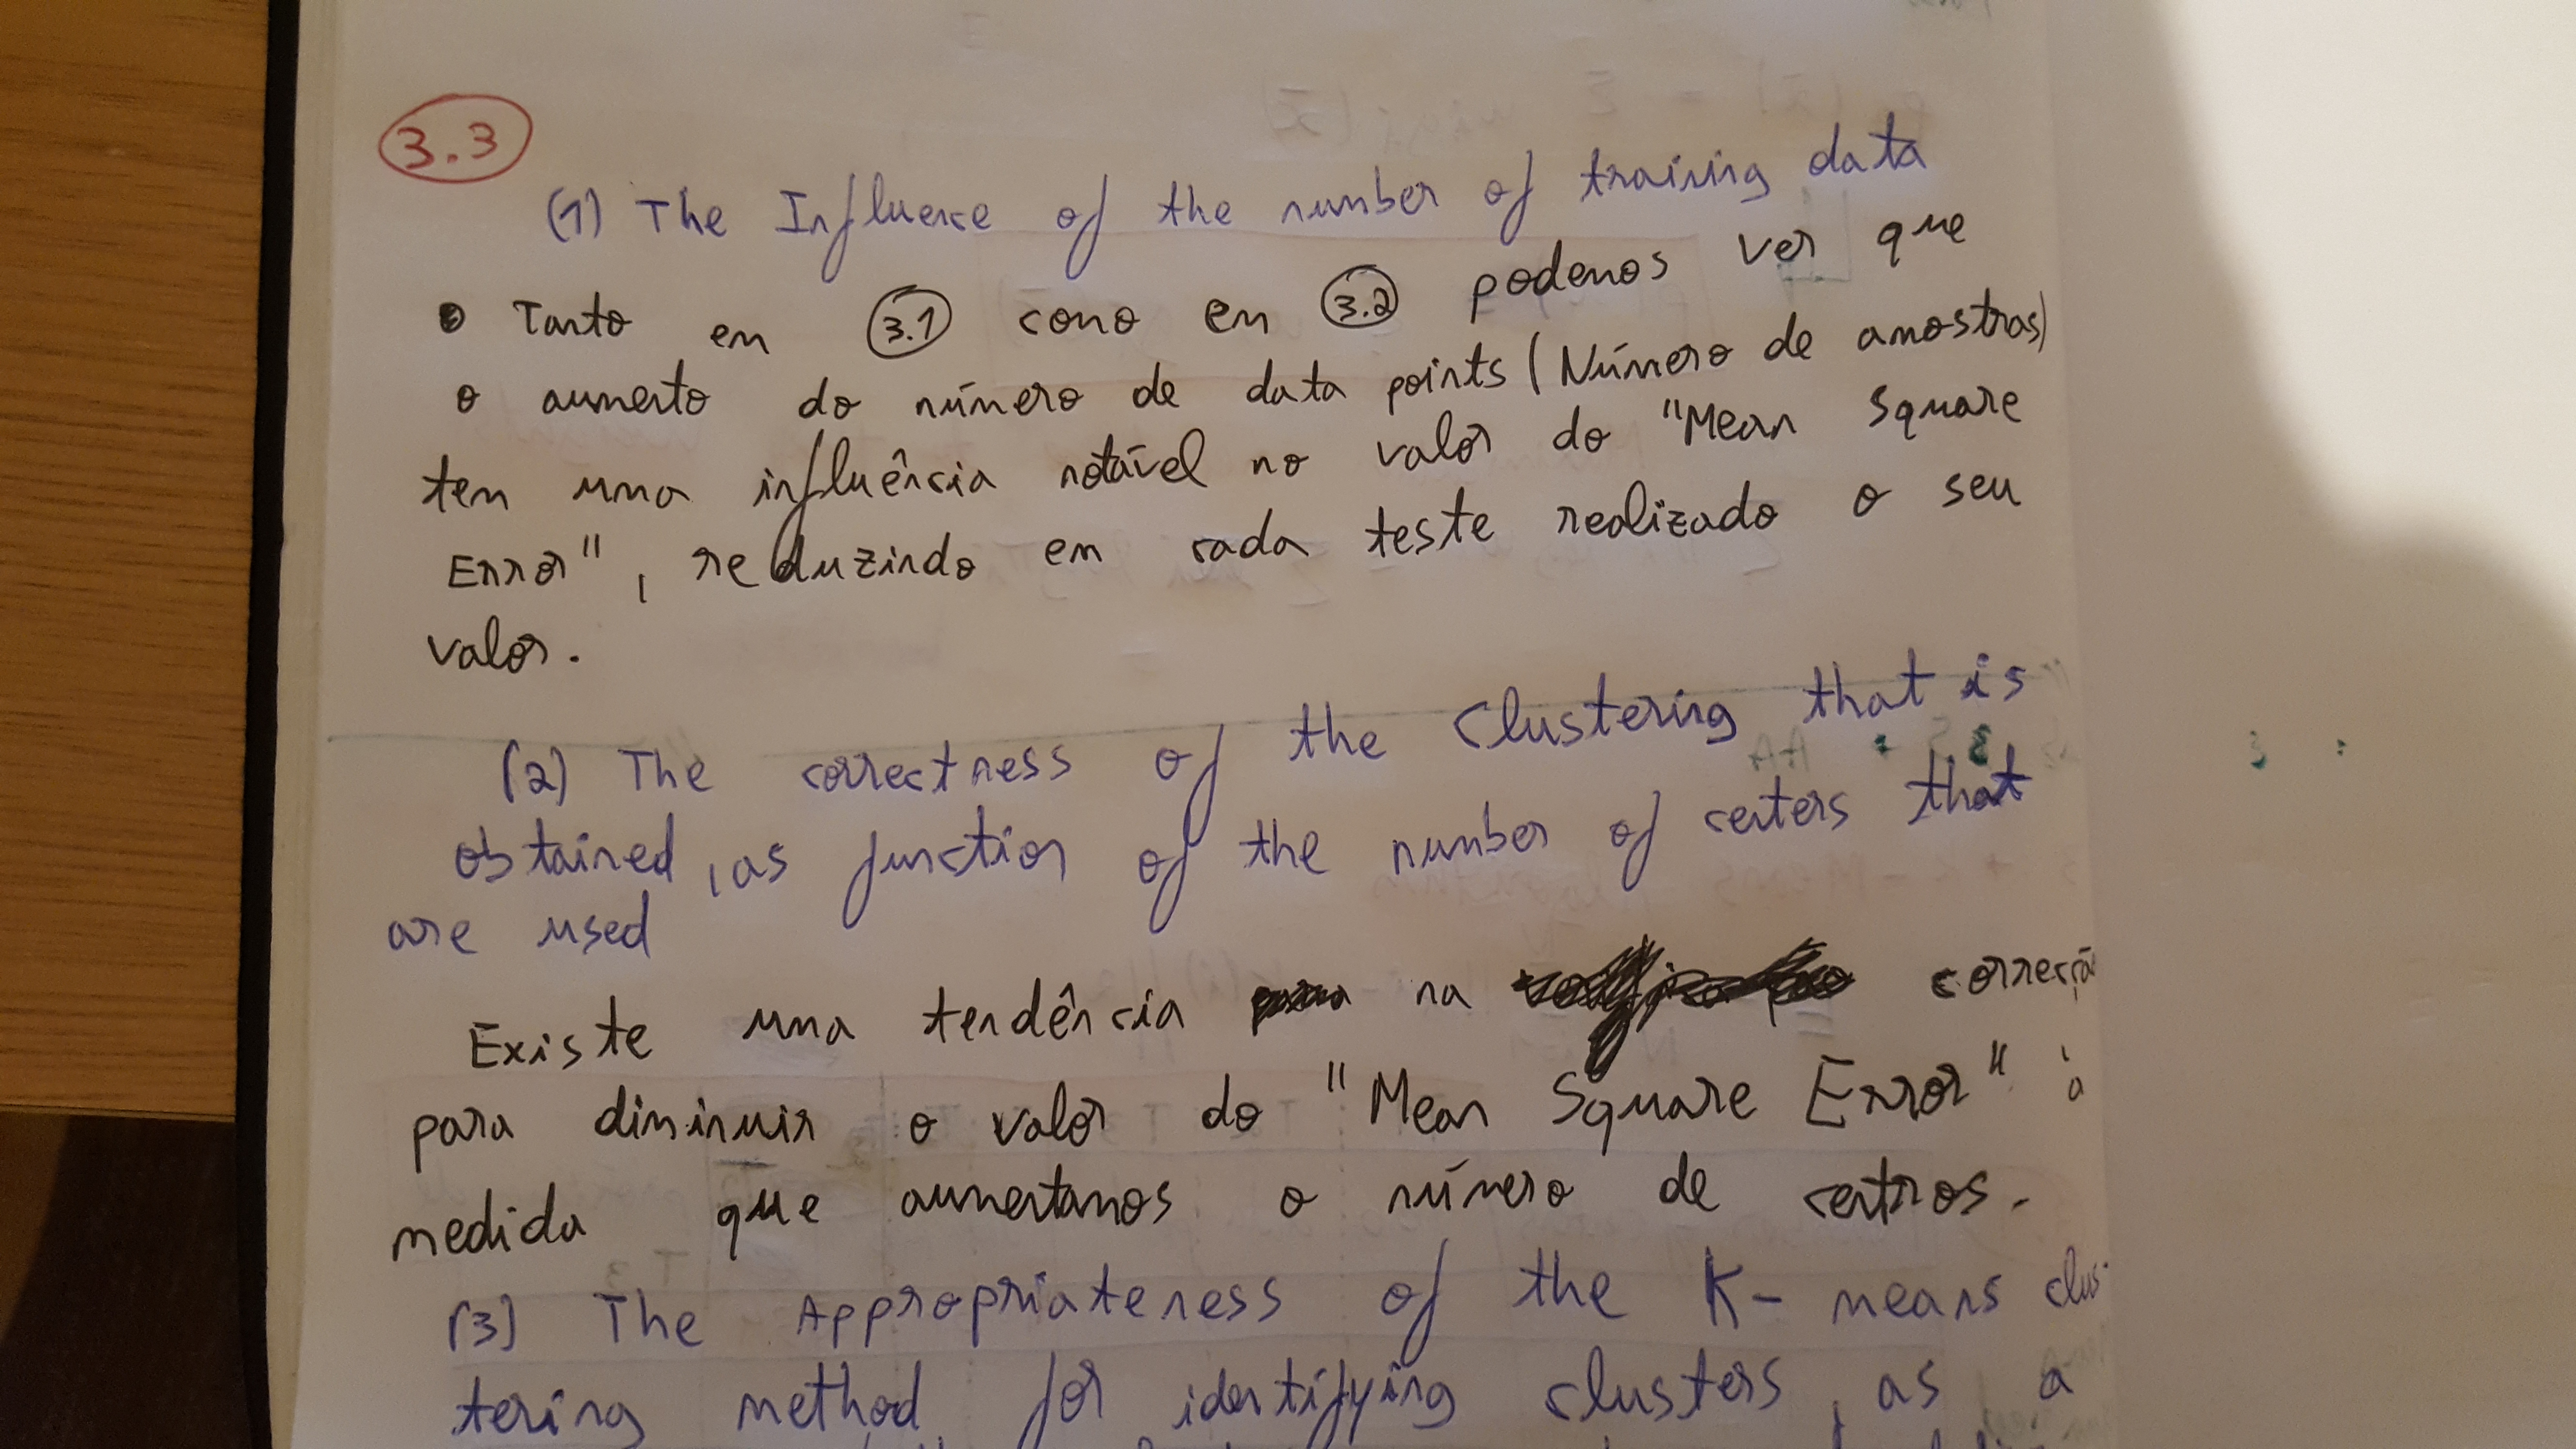 3.3
(1) The Influence of the number of training data
• Tanto em 3.1 como em 3.2 podemos ver que
o aumento do número de data points (Número de amostras)
tem uma influência notável no valor do "Mean Square
Error", reduzindo em cada teste realizado o seu
valor.
(2) The correctness of the Clustering that is
obtained, as function of the number of centers that
are used
Existe uma tendência na correção
para diminuir o valor do "Mean Square Error" à
medida que aumentamos o número de centros.
(3) The Appropriateness of the K-means clus-
tering method for identifying clusters, as a